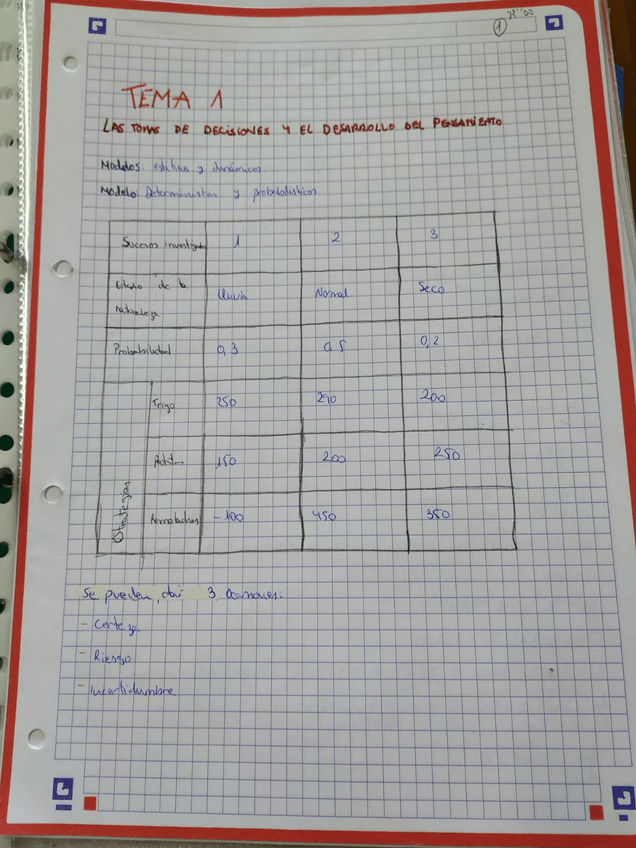 1
TEMA 1
LAS TOMAS DE DECISIONES Y EL DESARROLLO DEL PENSAMIENTO
Modelos estáticos y dinámicos.
Modelo Deterministas y probabilísticos
Sucesos 1 2 3
Estado de la naturaleza Lluvia Normal Seco
Probabilidad 0,3 0,5 0,2
Estrategias
Trigo 250 200
150 200 250
Remolachas -100 450 350
Se pueden dar 3
- Certeza
- Riesgo
- Incertidumbre